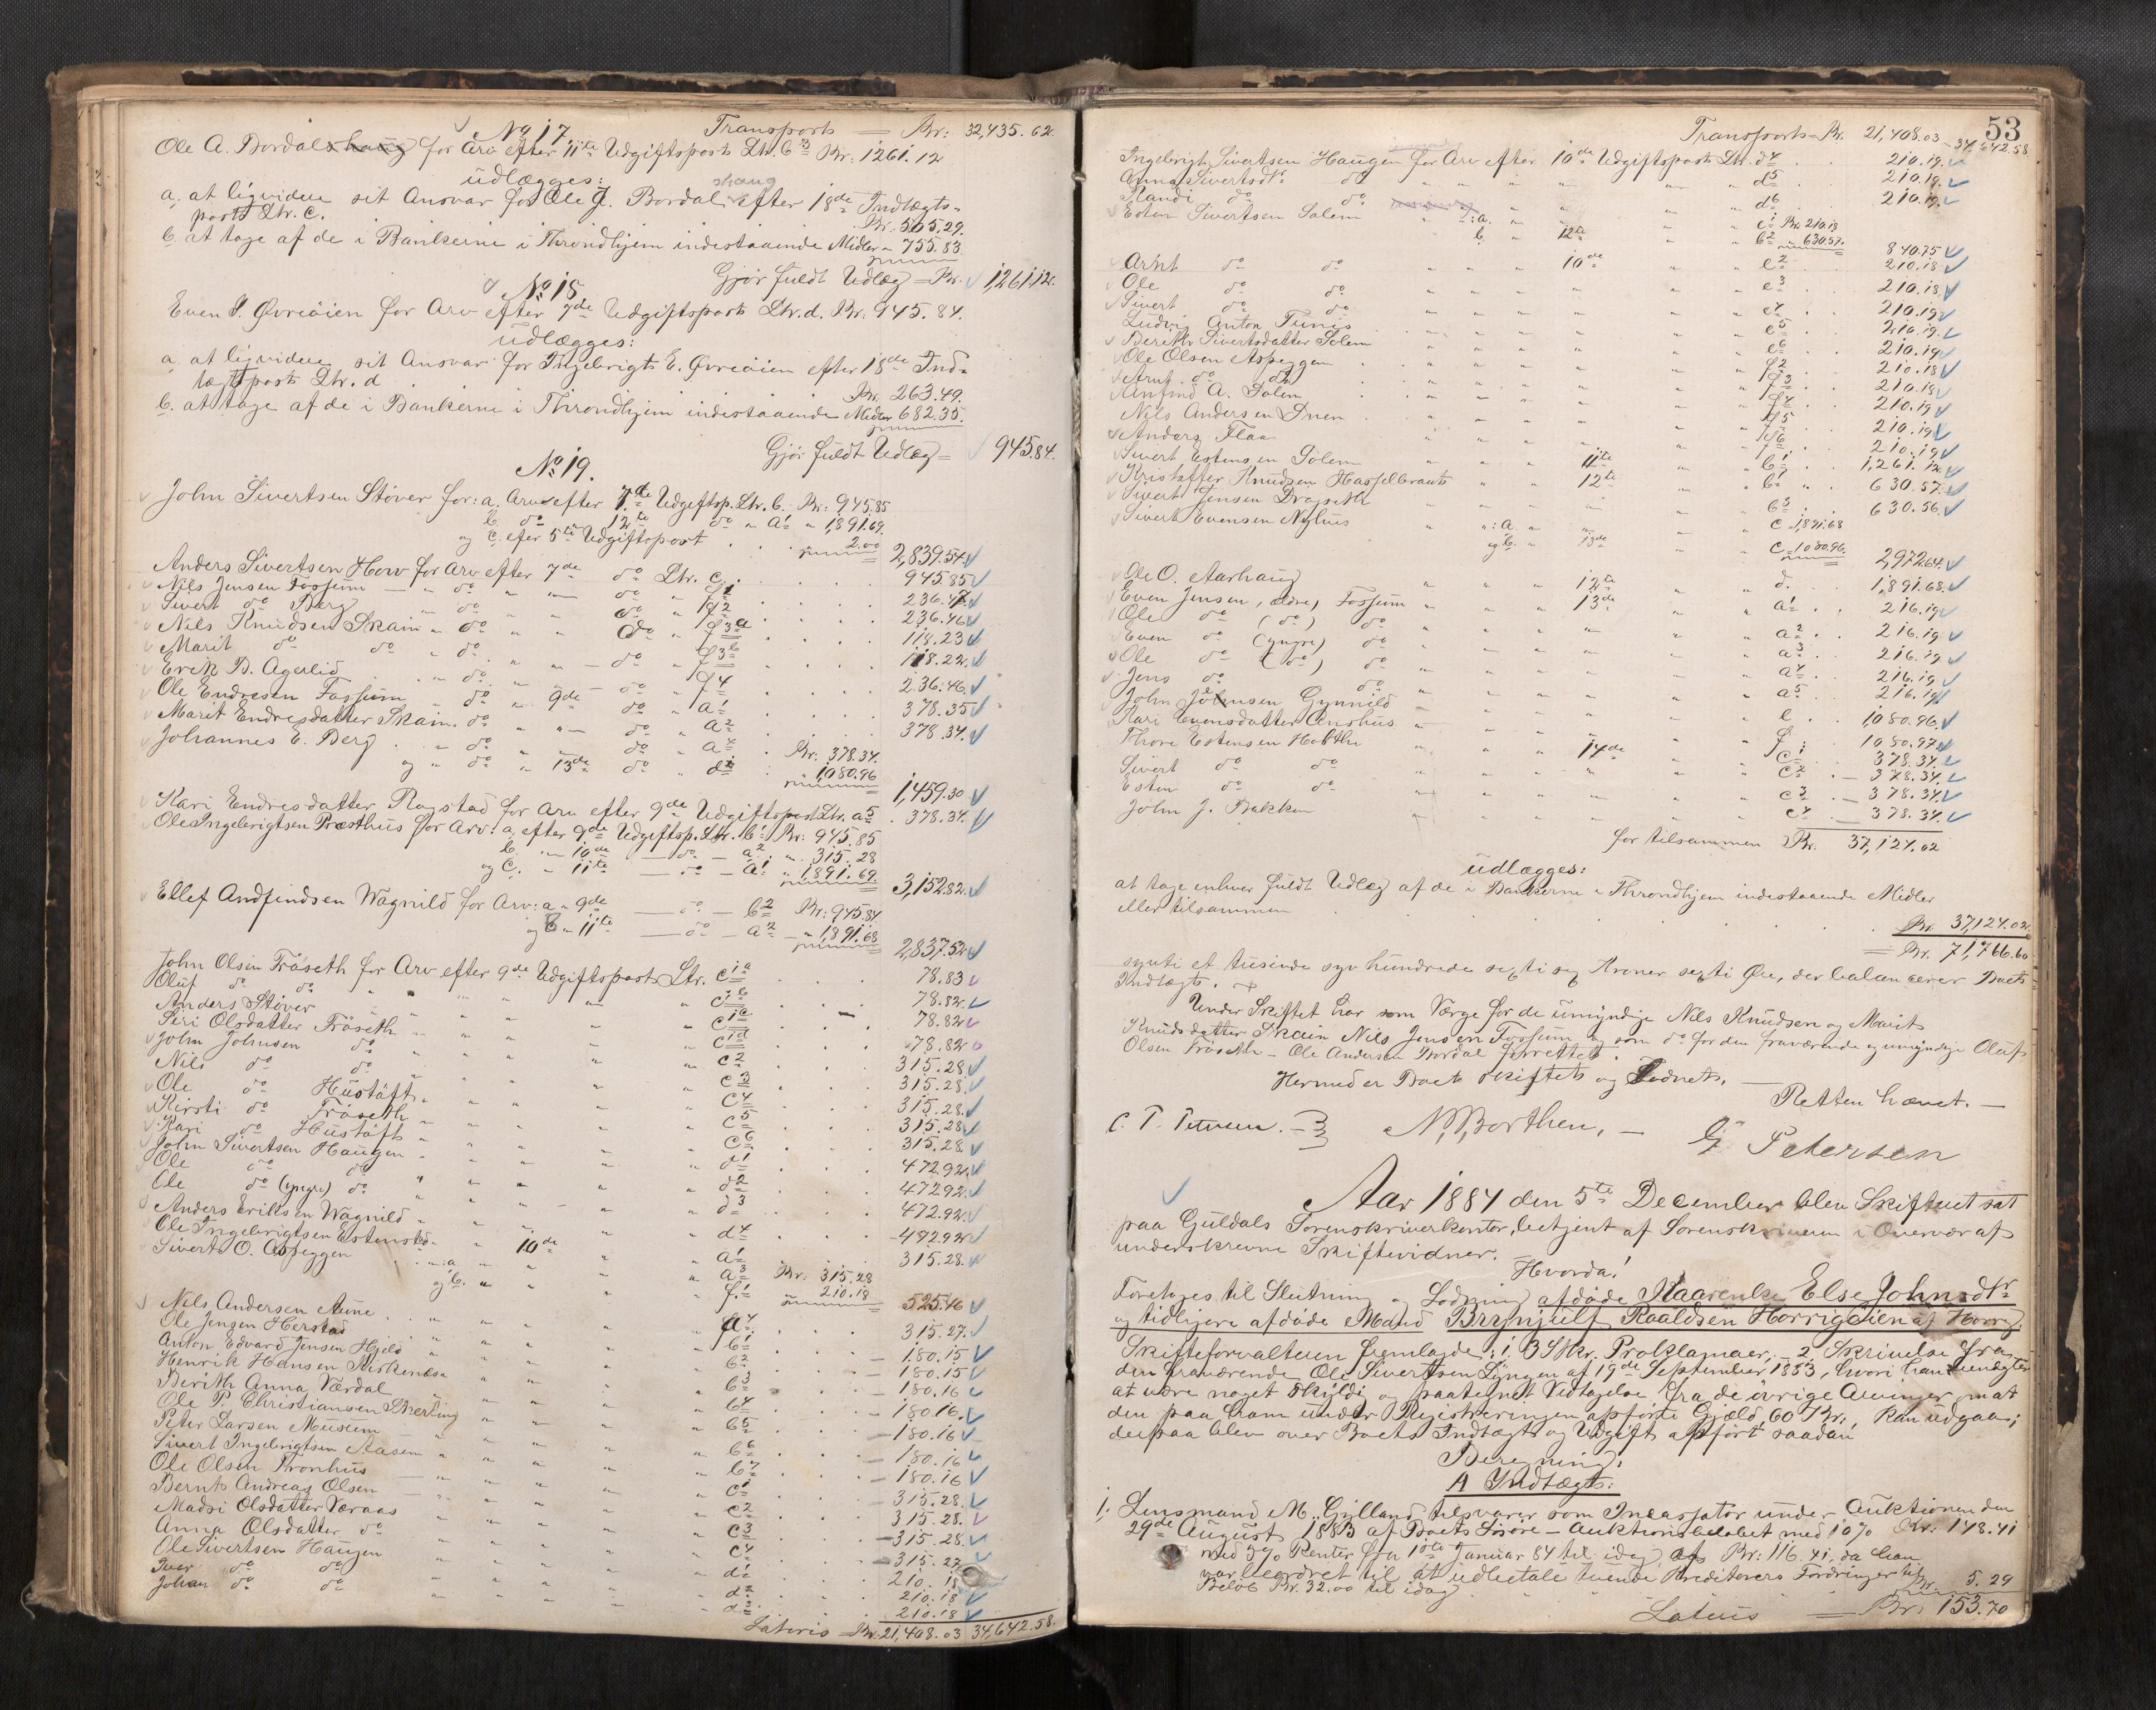 Transport = Kr: 32,435.62.
No 17.
Ole A. Bordalshaug for Arv efter 11te Udgiftspost Ltr. b3 Kr: 1261.12
udlægges:
a, at ligvidere sit Ansvar for Ole J. Bordalshaug efter 18de Indtægts-
post Ltr. c. Kr. 505,29.
b. at tage af de i Bankerne i Throndhjem indestaaende Midler " 755.83
Gjør fuldt Udlæg = Kr. 1,261.12.
No 18
Even I. Øvreøien for Arv efter 7de Udgiftspost Ltr. d. Kr: 945.84.
udlægges:
a, at ligvidere sit Ansvar for Ingebrigt E. Øvreøien efter 18de Ind-
tægtspost Ltr. d Kr. 263.49.
b. at tage af de i Bankerne i Throndhjem indestaaende Midler 682.35.
Gjør fuldt Udlæg = 945.84.
No 19.
John Sivertsen Støver for: a. Arv efter 7de Udgiftsp. Ltr. b. Kr: 945.85
b. do 12te do " a1 " 1,891.69.
og c. efter 5te Udgiftspost 2.00
2,839.54
Anders Sivertsen Hov for Arv efter 7de do Ltr. c. 945.85
Nils Jensen Fossum " do " " do " f1 236.47
Sivert do Berg " do " " do " f2 236.46
Nils Knudsen Skain " do " " do " f3a 118.23
Marit do do " do " " do " f3b 118.22
Erik B. Agerlid " do " " do " f4 236.46
Ole Endresen Fossum " do " 9de do " a1 378.35
Marit Endresdatter Skain. do " " do " a2 378.34
Johannes E. Berg " do " " do " a4 Kr: 378.34.
og " do " 13de do " d 1,080.96
1,459.30
Kari Endresdatter Rogstad for Arv efter 9de Udgiftspost Ltr. a5 378.34.
Ole Ingebrigtsen Præsthus for Arv: a. efter 9de Udgiftsp. Ltr. b1 Kr: 945.85
b. " 10de do a2 " 315.28
og c. " 11te do a1 " 1,891.69.
3,152.82
Ellef Andfindsen Wagnild for Arv: a " 9de do b2 Kr: 945.84.
og b " 11te do a2 " 1,891.68
2,837.52
John Olsen Frøseth for Arv efter 9de Udgiftspost Ltr. c1a 78.83
Oluf do do " " " " c1b 78.82
Anders Støver " " " " c1c 78.82
Siri Olsdatter Frøseth " " " " c1d 78.82
John Johnsen do " " " " c2 315.28
Nils do do " " " " c3 315.28
Ole do Hustøft " " " " c4 315.28
Kirsti do Frøseth " " " " c5 315.28
Kari do Hustøft " " " " c6 315.28
John Sivertsen Haugen " " " " d1 472.92
Ole do do " " " " d2 472.92
Ole do (yngre) do " " " " d3 472.92
Anders Eriksen Wagnild " " " " d4 472.92
Ole Ingebrigtsen Estenstad " " 10de " a1 315.28
Sivert O. Aspeggen " : a " " " a3 Kr: 315.28
og b. " " " f1 210.18
525.46
Nils Andersen Aune " " " " a4 315.27
Ole Jensen Herstad " " " " b1 180.15
Anton Edvard Jensen Hjeld " " " " b2 180.15
Henrik Hansen " " " " b3 180.16
Berith Anna Værdal " " " " b4 180.16
Ole P. Christiansen " " " " b5 180.16
Peter Larsen Museum " " " " b6 180.16
Sivert Ingebrigtsen Aasen " " " " b7 180.16
Ole Olsen Tronhus " " " " c1 315.28
Bernt Andreas Olsen " " " " c2 315.28
Madsi Olsdatter Væraas " " " " c3 315.28
Anna Olsdatter do " " " " c4 315.27
Ole Sivertsen Haugen " " " " d1 210.18
Iver do do " " " " d2 210.18
Johan do do " " " " d3 210.18
Lateris = Kr. 21,408.03 34,642.58.
53
Transport = Kr. 21,408.03 - 34,642.58
Ingebrigt Sivertsen Haugen for Arv efter 10de Udgiftspost Ltr. d4 210.19.
Anna Sivertsdtr do " " " " d5 210.19.
Randi do do " " " " d6 210.19.
Esten Sivertsen Solem " : a. " " " e1 Kr. 210.18
b. " 12te " b2 " 630.57.
840.75
Arnt do do " " 10de " e2 210.18
Ole do do " " " " e3 210.18
Sivert do do " " " " e4 210.19
Ludvig Anton Tunis " " " " e5 210.19.
Bereth Sivertsdatter Solem " " " " e6 210.19
Ole Olsen Aspeggen " " " " f2 210.18
Arnt do do " " " " f3 210.18
Anfind A. Solem " " " " f4 210.19
Nils Andersen " " " " f5 210.19
Anders Flaa " " " " f6 210.19
Sivert Estensen Solem " " 11te " b1 1,261.12.
Kristoffer Knudsen Hasselbrant " " 12te " b1 630.57.
Sivert Jensen Dragseth " " " " b3 630.56.
Sivert Evensen Nyhus " : a. " " " c 1,891.68
og b. " 13de " c 1080.96.
2,972.64.
Ole O. Aarhaug " " 12te " d. 1,891.68.
Even Jensen, (ældre) Fossum " " 13de " a1 216.19
Ole do (do) do " " " " a2 216.19
Even do (yngre) do " " " " a3 216.19
Ole do (do) do " " " " a4 216.19
Jens do do " " " " a5 216.19
John Johnsen Gynnild " " " " e. 1080.96.
Kari Evensdatter Aushus " " " " f. 1080.97
Thore Estensen " " 14de " c1 378.34.
Sivert do do " " " " c2 378.34.
Esten do do " " " " c3 378.34.
John J. Bakken " " " " c4 378.34.
for tilsammen Kr. 37,124.02
udlægges:
at tage enhver fuldt Udlæg af de i Bankerne i Throndhjem indestaaende Midler
eller tilsammen Kr. 37,124.02.
= Kr. 71,766.60
sytti et tusinde syv hundrede sexti sex Kroner sexti Øre, der balancerer Boets
Indtægt.
Under Skiftet har som Værge for de umyndige Nils Knudsen og Marit
Knudsdatter Skain Nils Jensen Fossum og som do for den fraværende og umyndige Oluf
Olsen Frøseth - Ole Andersen Bordal forrettet.
Hermed er Boet skiftet og Lodnet.
Retten hævet. —
C. T. Petersen. N. Borthen. G Petersen
Aar 1884 den 5te December blev Skifteret sat
paa Guldals Sorenskriverkontor, betjent af Sorenskriveren i Overvær af
underskrevne Skiftevidner.
Hvorda!
Foretoges til Slutning og Lodning afdøde Kaarenke Else Johnsdtr
og tidligere afdøde Mand Brynjulf Roaldsen Horrigøien af Horrig
Skifteforvalteren fremlagde: 1. 3 Stkr. Proklamaer - 2 Skrivelse fra
den fraværende Ole Sivertsen Lyngen af 19de September 1883, hvori han benægter
at være noget skyldi og paategnet Vedtagelse fra de øvrige Arvinger om at
den paa ham under Registreringen opførte Gjæld, 60 Kr., kan udgaa;
derpaa blev over Boets Indtægt og Udgift opført saadan
Beregning:
A Indtægt:
1, Lensmand M. Gylland tilsvarer som Incassator under Auktionen den
29de August 1883 af Boets Løsøre - Auktionsbeløbet med 10% Kr: 148.41
med 5% Renter fra 1ste Januar 84 til idag af Kr: 116.41, da han
var beordret til at udbetale tvende Kreditorers Fordringer til
Beløb Kr. 32.00 til idag Kr. 5.29
Lateris = Kr: 153.70